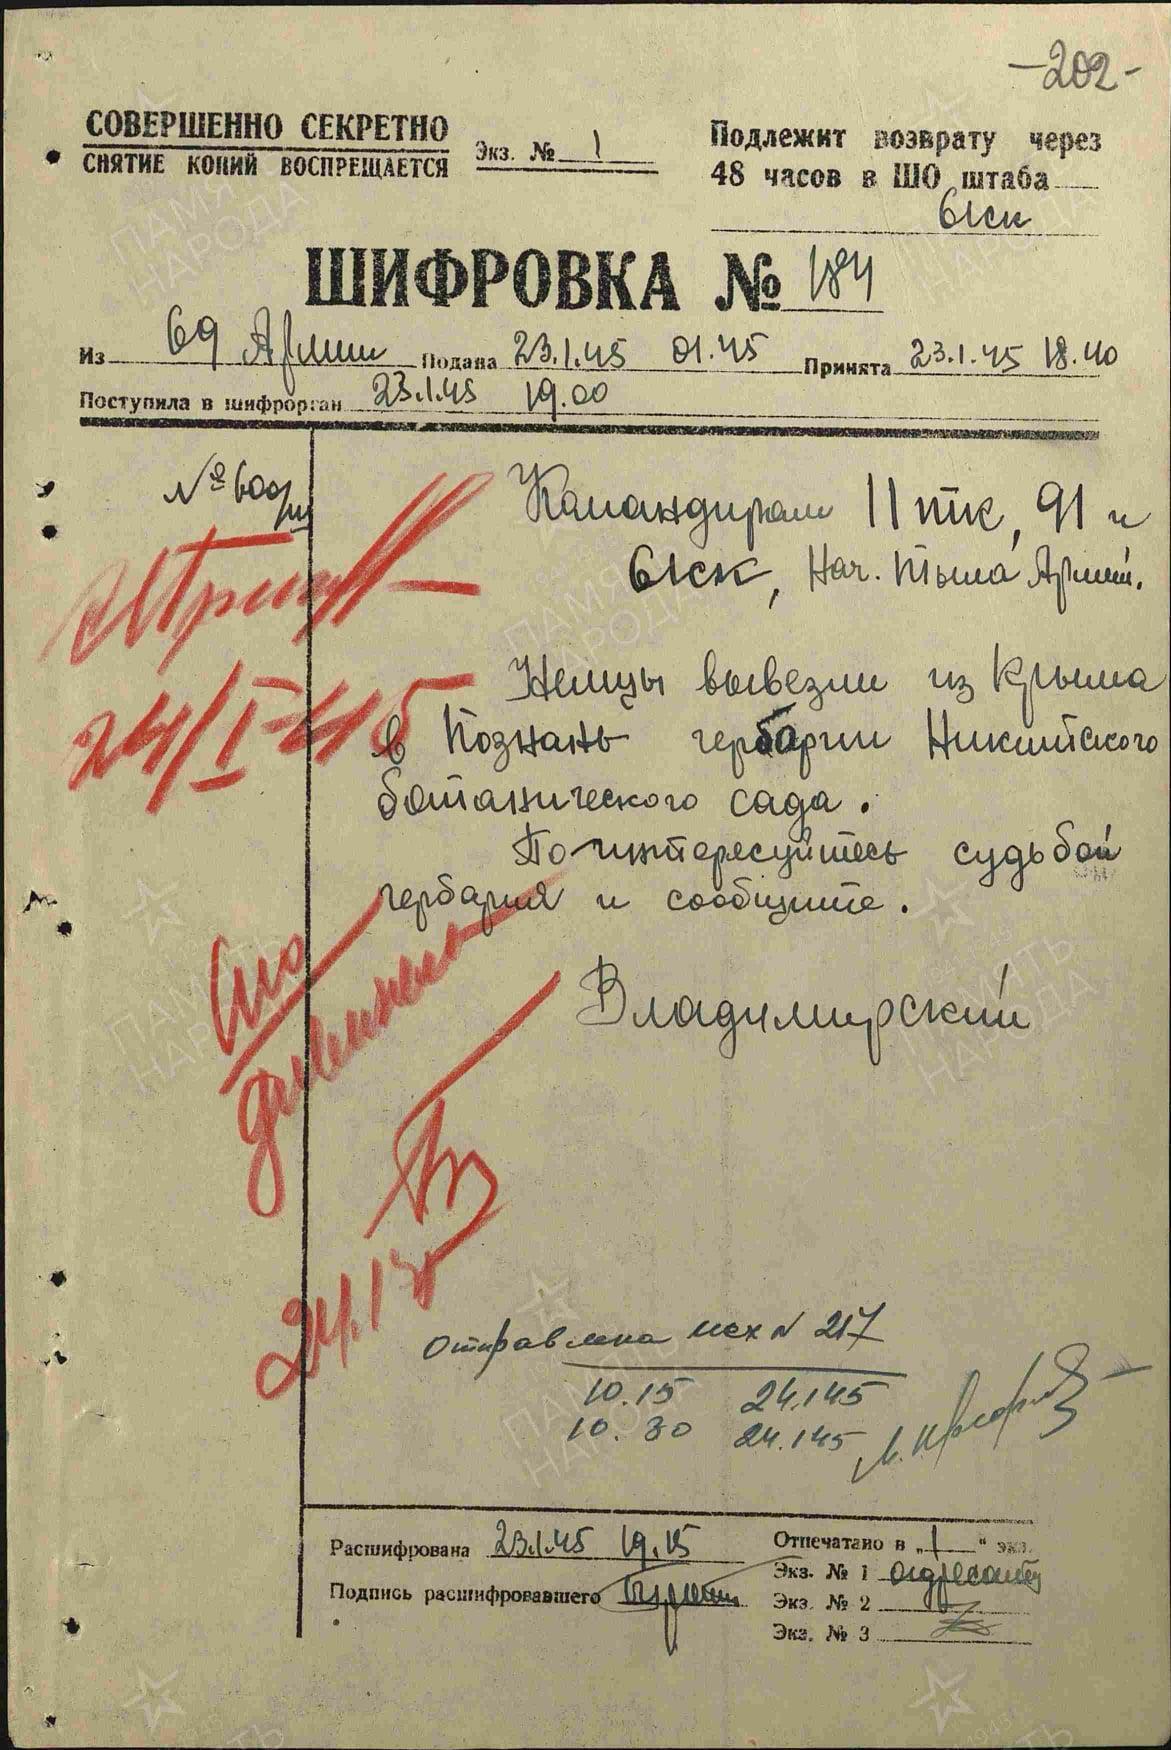 -202-
СОВЕРШЕННО СЕКРЕТНО
СНЯТИЕ КОПИЙ ВОСПРЕЩАЕТСЯ
Экз. № 1
Подлежит возврату через
48 часов в ШО штаба
61ск
ШИФРОВКА № 184
Из 69 Армии Подана 23.1.45 01.45 Принята 23.1.45 18.40
Поступила в шифрорган 23.1.45 19.00
№600/ш
Командирам 11 тк, 91 и
61ск, Нач. тыла Армии.
Немцы вывезли из Крыма
в Познань гербарии Никитского
ботанического сада.
Поинтересуйтесь судьбой
гербария и сообщите.
Владимирский
24/I-45
24.1
Отправлена исх N 217
10.15 24.1.45
10.30 24.1.45
Расшифрована 23.1.45 19.15
Подпись расшифровавшего
Отпечатано в „1“ экз.
Экз. № 1 адресату
Экз. № 2
Экз. № 3
ПАМЯТЬ
НАРОДА